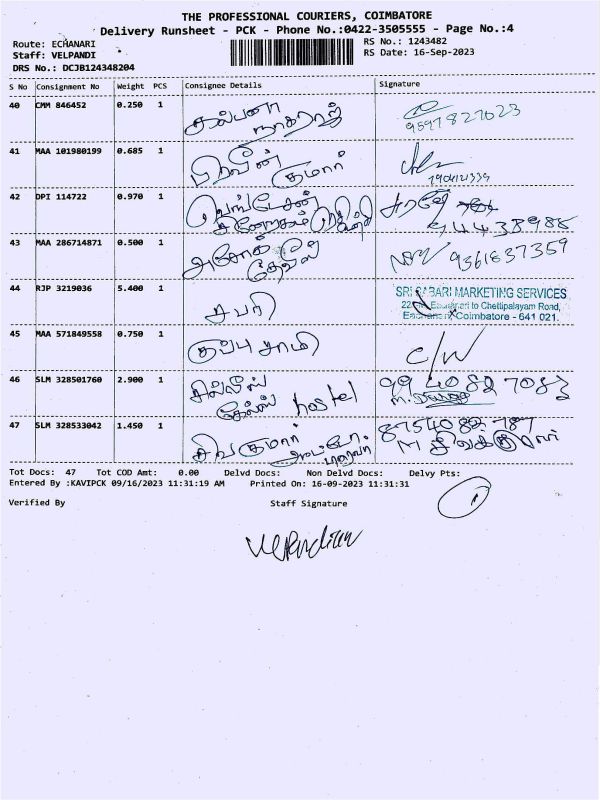 THE PROFESSIONAL COURIERS, COIMBATORE
Delivery Runsheet - PCK - Phone No.:0422-3505555 - Page No.:4
Route: ECHANARI RS No.: 1243482
Staff: VELPANDI RS Date: 16-Sep-2023
DRS No.: DCJB124348204
S No Consignment No Weight PCS Consignee Details Signature
40 CMM 846452 0.250 1 கல்பனா
நாகராஜ் 9597827023
41 MAA 101980199 0.685 1 பிரவீன்
குமார்
42 DPI 114722 0.970 1
43 MAA 286714871 0.500 1 அசோக்
9361837359
44 RJP 3219036 5.400 1 சபரி
SRI SABARI MARKETING SERVICES
Echanari to Chettipalayam Road,
Coimbatore - 641 021.
45 MAA 571849558 0.750 1 குப்புசாமி C/W
46 SLM 328501760 2.900 1 99 4082 7083
hostel
47 SLM 328533042 1.450 1 சிவகுமார் 8754082787
Tot Docs: 47 Tot COD Amt: 0.00 Delvd Docs: Non Delvd Docs: Delvy Pts:
Entered By :KAVIPCK 09/16/2023 11:31:19 AM Printed On: 16-09-2023 11:31:31
Verified By Staff Signature
Velpandian